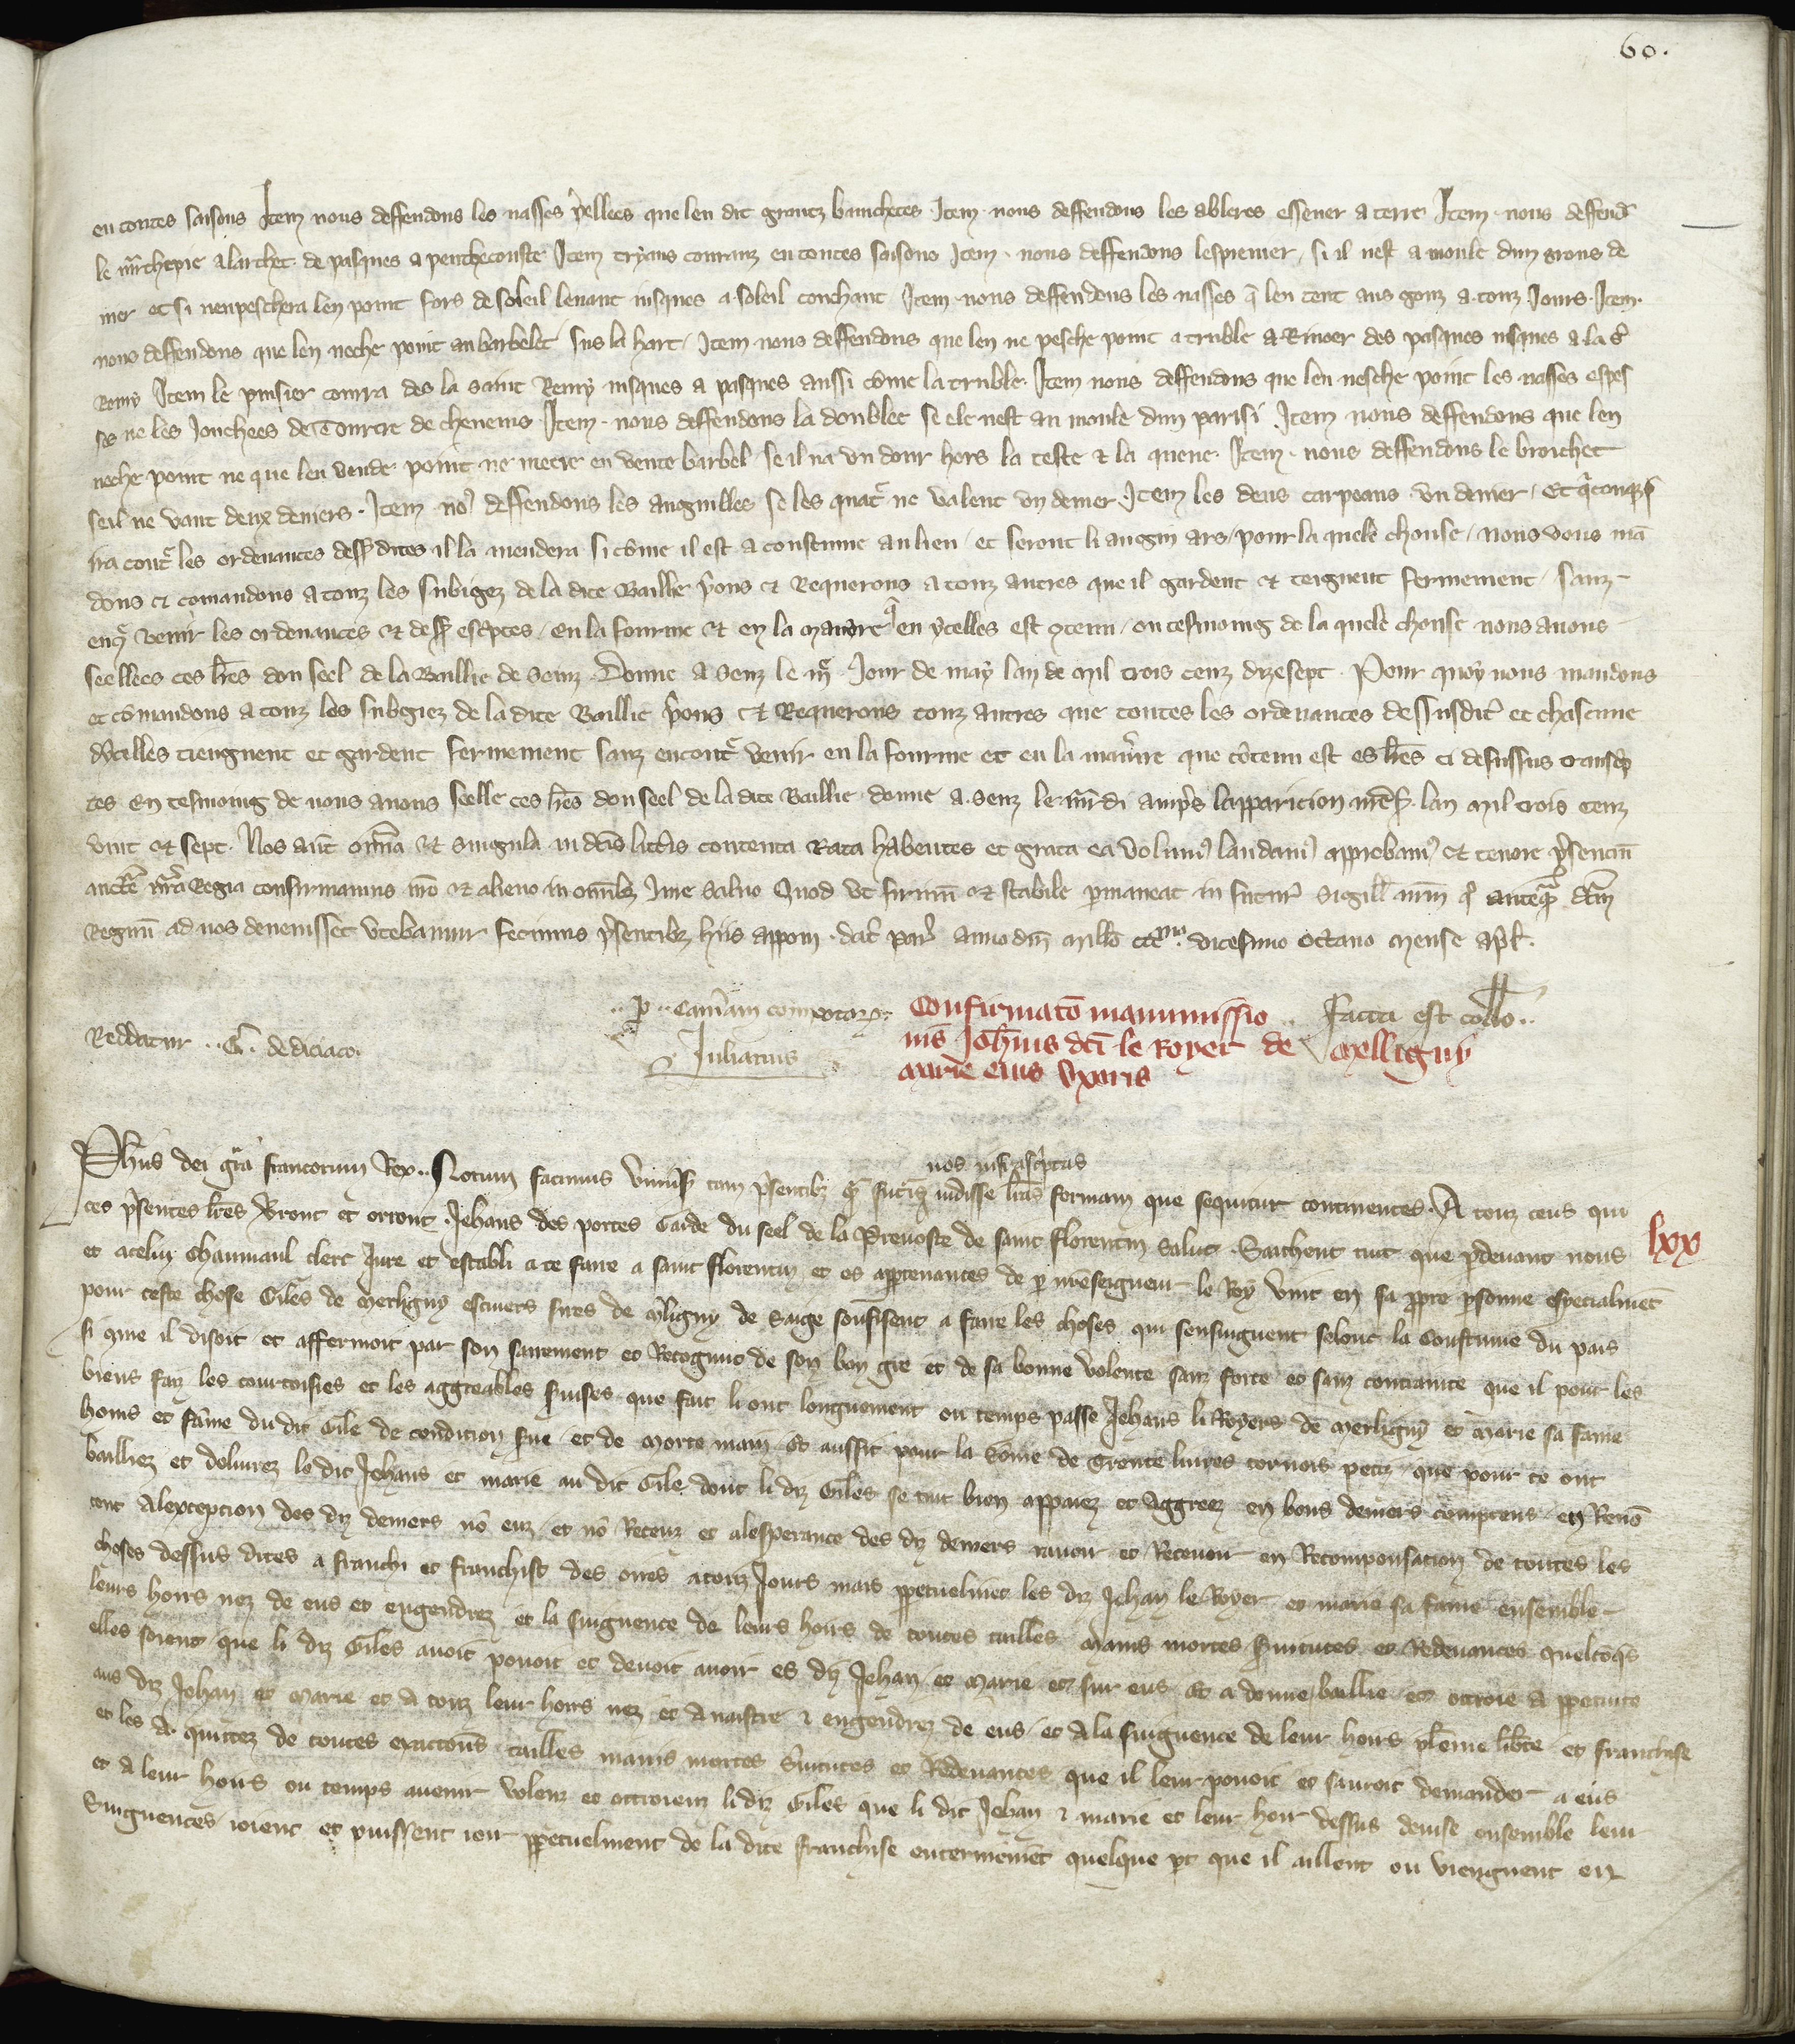 60.
en toutes saisons Item nous deffendons les nasses pellees que len dit grantz banchetes Item nous deffendons les ableres essener a terre Item nous deffend
le marchepie a larchet de pasques a penthecouste Item tryans couranz en toutes saisons Item nous deffendons lespremer si il nest a moule dun grous de
nier et si nenpeschera len point fors de soleil levant jusques a soleil couchant Item nous deffendons les nasses q̄ len tent aus gorz a touz Jours Item
nous deffendons que len neche point au barbelet sus la hart Item nous deffendons que len ne pesche point a truble a Rivoer des pasques jusques a la st
Remy Item le pinsier courra des la saint Remy jusques a pasques aussi come la truble Item nous deffendons que len nesche point les nasses espes
ses ne les Jonchees de Tourtre de chenevis Item nous deffendons la doublee se ele nest au moule dun parisi Item nous deffendons que len
neche point ne que len vende point ne mecte en vente barbel se il na un dour hors la teste et la queue Item nous deffendons le brochet
seil ne vaut deux deniers Item no9 deffendons les anguilles se les quatr ne valent un denier Item les deus carpeaus un denier Et
ira contr les ordenances dess dites il la mendera si come il est a constume au lieu et seront li angin ars pour la quele chouse nous vous mā
dons et comandons a touz les subigez de la dite Baillie pons et Requerons a touz autres que il gardent et teignent fermement sanz
encontre venir les ordenances et dess escptes en la fourme et en la maniere q̄ en ycelles est contenu en tesmoing de la quele chouse nous avons
seellees ces lres dou seel de la Baillie de Senz Donne a Senz le Jour de may lan de mil trois cenz dizesept Pour quoy nous mandons
et comandons a touz les subgiez de la dite Baillie pons et Requerons touz autres que toutes les ordenances dessusdites et chascune
dycelles tieugnent et gardent fermement sanz encontr venir en la fourme et en la maniere que cotenu est es lres ci desussus transcp
tes En tesmoing de nous avons seelle ces lres dou seel de la dite Baillie donne a Senz le mardi amps lapparicion lan mil trois cenz
vint et sept Nos aut omnia et singula in dcis litteris contenta Rata habentes et grata ea volum9 laudam9 approbam9 et tenore psencium
auctte nra Regia confirmamus nro et alieno in omnibz Jure salvo Quod ut firmu et stabile pmaneat in futur sigill nrm q̄ anteq̄ dcm
Regnu ad nos devenisset utebamur fecimus psentibz hiis apponi dat par anno dni millo ccc mo vicesimo octavo mense april
p cameram compotorum
Julianus
Reddatur G de diciaco
Facta est collo
Confirmato manumissio
nis Johnis dci le Royer de Melligny
Marie eius uxoris
lxx
Phus dei gra francorum Rex Notum facimus universis tam psentibz q̄ futuris nos infrascptas vidisse lras formam que sequitur continentes A touz ceus qui
ces psentes lres verront et orront Jehans des portes Garde du seel de la Prevoste de saint florentin salut Sachent tuit que pdevant nous
et acelui Chaumaul clerc Jure et establi a ce faire a saint florentin et es apptenances de p nreseigneur le Roy vint en sa ppre psonne especialmet
pour ceste chose Giles de Merligny escuiers sires de mligny de saige souffisent a faire les choses qui sensuiguent selonc la Coustume du pais
si que il disoit et affermoit par son sairement et Recognut de son bon gre et de sa bonne volente sanz force et sanz contrainte que il pour les
biens faiz les courtoisies et les aggreables suises que fait li ont longuement ou temps passe Jehans li Royers de Merligny et Marie sa fame
homs et fame du dit Gile de condition sve et de morte main Et aussit pour la some de Trente livres tornois petiz que pour ce ont
bailliez et delivrez le dit Jehans et marie au dit Gile dont li diz Giles se tint bien appaiez et aggreez en bons deniers comptens en Reno
cent alexception des diz deniers no euz et no Receuz et alesperance des diz deniers ravoir et Recevoir en Recompensation de toutes les
choses dessus dites a franchi et franchist des ores a touz Jours mais ppetuelmet les diz Jehan le Royer et marie sa fame ensemble
leurs hoirs nez de eus et engendrez et la suiguence de leurs hoirs de toutes tailles mains mortes suitutes et Redevances quelcoqs
elles soient que li diz Giles avoit povoit et devoit avoir es diz Jehan et Marie et sur eus et a donne baillie et ottroie a ppetuite
aus diz Jehan et Marie et a touz leur hoirs nez et a naistre et engendrez de eus et a la suiguence de leur hoirs pleme liberte et franchise
et les a quittez de toutes exactions tailles mains mortes svitutes et Redevances que il leur povoit et sauroit demander a eus
et a leur hoirs ou temps avenir volenz et ottroienz li diz Giles que li dit Jehan et marie et leur hoir dessus devise ensemble leur
suiguences ioient et puissent ioir ppetuelment de la dite franchise enterinemet quelque pt que il aillent ou viengnent en